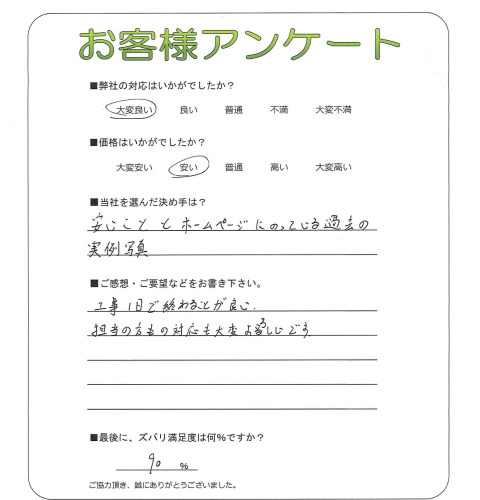 お客様アンケート
■弊社の対応はいかがでしたか？
大変良い 良い 普通 不満 大変不満
■価格はいかがでしたか？
大変安い 安い 普通 高い 大変高い
■当社を選んだ決め手は？
安いこと と ホームページにのっている過去の
実例写真
■ご感想・ご要望などをお書き下さい。
工事1日で終わることが良い.
担当の方もの対応も大変よろしいです
■最後に、ズバリ満足度は何%ですか？
90 %
ご協力頂き、誠にありがとうございました。